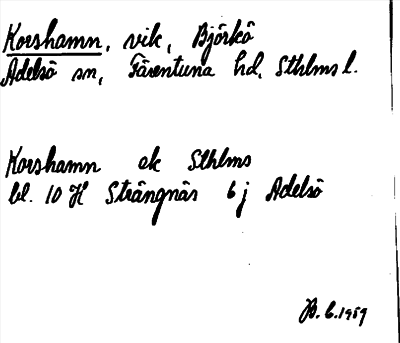 Korshamn, vik, Björkö
Adelsö sn, Färentuna hd, Sthlms l.
Korshamn ek Sthlms
bl. 10 H Strängnäs 6 j Adelsö
B. C. 1959